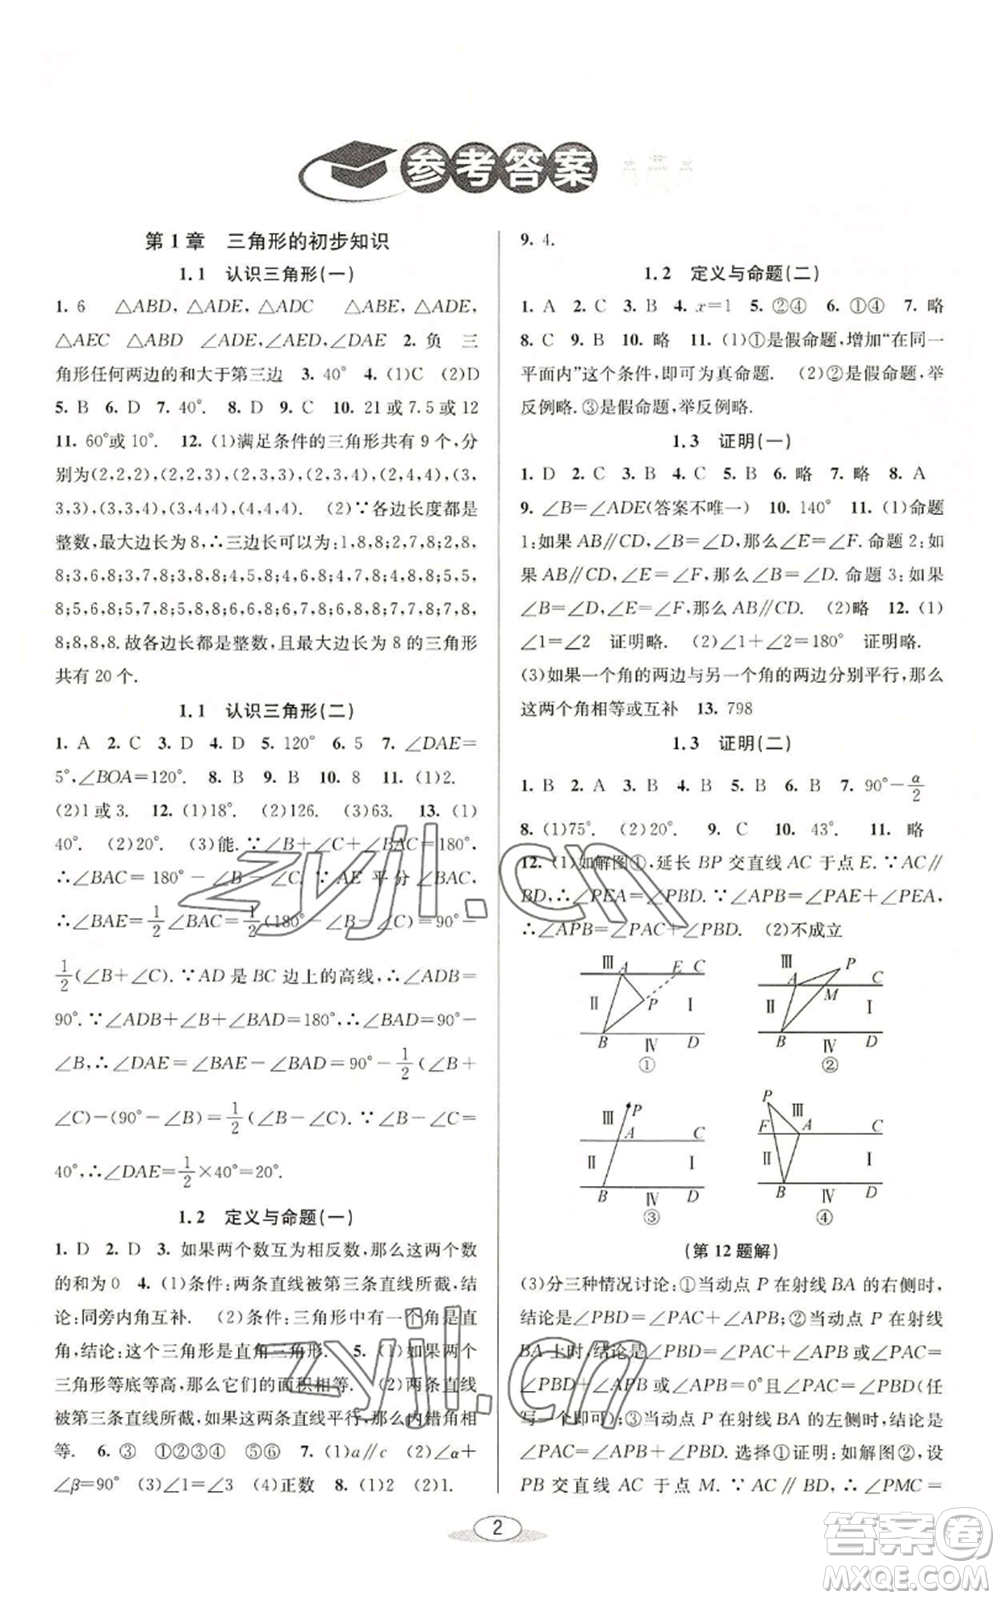 参考答案
第1章 三角形的初步知识
1.1 认识三角形(一)
1. 6 △ABD, △ADE, △ADC △ABD, △ADE,
△AEC △ABD ∠ADE, ∠AED, ∠DAE 2. 负 三
角形任何两边的和大于第三边 3. 40° 4. (1)C (2)D
5. B 6. D 7. 40°. 8. B 9. C 10. 21或7.5或12
11. 60°或10°. 12. (1)满足条件的三角形共有9个,分
别为(2,2,2),(2,2,3),(2,3,3),(2,3,4),(2,4,4),(3,
3,3),(3,3,4),(3,4,4),(4,4,4). (2)∵各边长度都是
整数,最大边长为8,∴三边长可以为:1,8,8;2,7,8;2,8,
8;3,6,8;3,7,8;3,8,8;4,5,8;4,6,8;4,7,8;4,8,8;5,5,
8;5,6,8;5,7,8;5,8,8;6,6,8;6,7,8;6,8,8;7,7,8;7,8,
8;8,8,8. 故各边长都是整数,且最大边长为8的三角形
共有20个.
1.1 认识三角形(二)
1. A 2. C 3. D 4. D 5. 120° 6. 5 7. ∠DAE=
5°,∠BOA=120°. 8. B 9. B 10. 8 11. (1)2.
(2)1或3. 12. (1)18°. (2)126. (3)63. 13. (1)
40°. (2)20°. (3)能. ∵∠B+∠C+∠BAC=180°,
∴∠BAC=180°-∠B-∠C. ∵AE平分∠BAC,
∴∠BAE=1/2∠BAC=1/2(180°-∠B-∠C)=90°-
1/2(∠B+∠C). ∵AD是BC边上的高线,∴∠ADB=
90°. ∵∠ADB+∠B+∠BAD=180°,∴∠BAD=90°-
∠B,∴∠DAE=∠BAE-∠BAD=90°-1/2(∠B+
∠C)-(90°-∠B)=1/2(∠B-∠C). ∵∠B-∠C=
40°,∴∠DAE=1/2×40°=20°.
1.2 定义与命题(一)
1. D 2. D 3. 如果两个数互为相反数,那么这两个数
的和为0 4. (1)条件:两条直线被第三条直线所截,结
论:同旁内角互补. (2)条件:三角形中有一个角是直
角,结论:这个三角形是直角三角形. 5. (1)如果两个
三角形等底等高,那么它们的面积相等. (2)两条直线
被第三条直线所截,如果这两条直线平行,那么内错角相
等. 6. ③ ①②③④ ⑤⑥ 7. (1)a∥c (2)∠α+
∠β=90° (3)1=1 (4)正数 8. (1)2. (2)1.
9. 4.
1.2 定义与命题(二)
1. A 2. C 3. B 4. x=1 5. ②④ 6. ①④ 7. 略
8. C 9. B 10. 略 11. (1)①是假命题,增加“在同一
平面内”这个条件,即可为真命题. (2)②是假命题,举
反例略. ③是假命题,举反例略.
1.3 证明(一)
1. D 2. B 3. C 4. C 5. B 6. 略 7. 略 8. A
9. ∠B=∠ADE(答案不唯一) 10. 140° 11. (1)命题
1:如果AB∥CD,∠B=∠D,那么∠E=∠F. 命题2:如
果AB∥CD,∠E=∠F,那么∠B=∠D. 命题3:如果
∠B=∠D,∠E=∠F,那么AB∥CD. (2)略 12. (1)
∠1=∠2 证明略. (2)∠1+∠2=180° 证明略.
(3)如果一个角的两边与另一个角的两边分别平行,那么
这两个角相等或互补 13. 798
1.3 证明(二)
1. B 2. A 3. B 4. C 5. B 6. B 7. 90°-α/2
8. (1)75°. (2)20°. 9. C 10. 43°. 11. 略
12. (1)如解图①,延长BP交直线AC于点E. ∵AC∥
BD,∴∠PEA=∠PBD. ∵∠APB=∠PAE+∠PEA,
∴∠APB=∠PAC+∠PBD. (2)不成立
Ⅲ A E C
Ⅱ P Ⅰ
B Ⅳ D
①
Ⅲ A P C
Ⅱ M Ⅰ
B Ⅳ D
②
Ⅲ P
A C
Ⅱ Ⅰ
B Ⅳ D
③
P Ⅲ
F A C
Ⅱ Ⅰ
B Ⅳ D
④
(第12题解)
(3)分三种情况讨论:①当动点P在射线BA的右侧时,
结论是∠PBD=∠PAC+∠APB;②当动点P在射线
BA上时,结论是∠PBD=∠PAC+∠APB或∠PAC=
∠PBD+∠APB或∠PAC=∠PBD,∠APB=0°(任
写一个即可);③当动点P在射线BA的左侧时,结论是
∠PAC=∠APB+∠PBD. 选择①证明:如解图②,设
PB交直线AC于点M. ∵AC∥BD,∴∠PMC=
2
zyjl.cn
zyjl.cn
答案卷
MXQE.COM